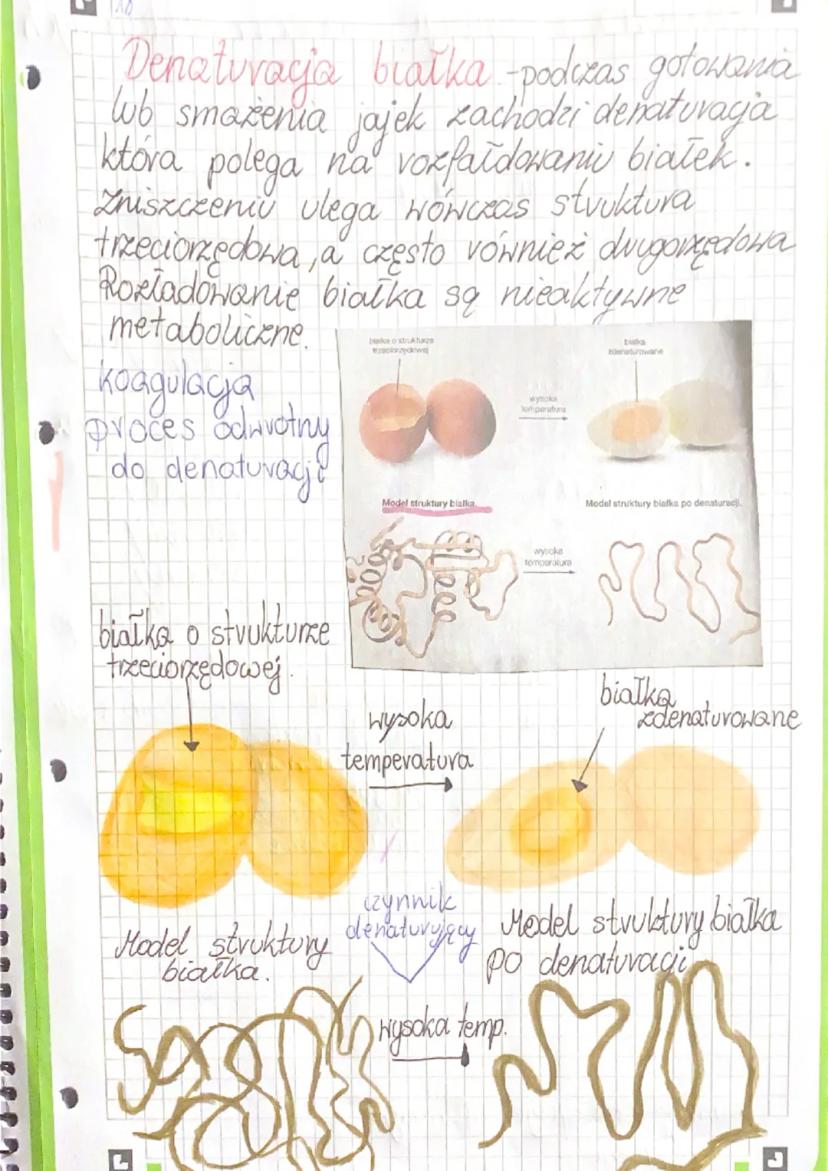 18
Denaturacja białka - podczas gotowania
lub smażenia jajek zachodzi denaturacja
która polega na rozfałdowaniu białek.
Zniszczeniu ulega wówczas struktura
trzeciorzędowa, a często również drugorzędowa
Rozfadowanie białka są nieaktywne
metaboliczne.
koagulacja
proces odwrotny
do denaturacji
białka o strukturze
trzeciorzędowej
białka
zdenaturowane
wysoka
temperatura
Model struktury białka.
Model struktury białka po denaturacji.
wysoka
temperatura
białka o strukturze
trzeciorzędowej.
wysoka
temperatura
białka
zdenaturowane
czynnik
denaturujący
Model struktury
białka.
Model struktury białka
po denaturacji
wysoka temp.